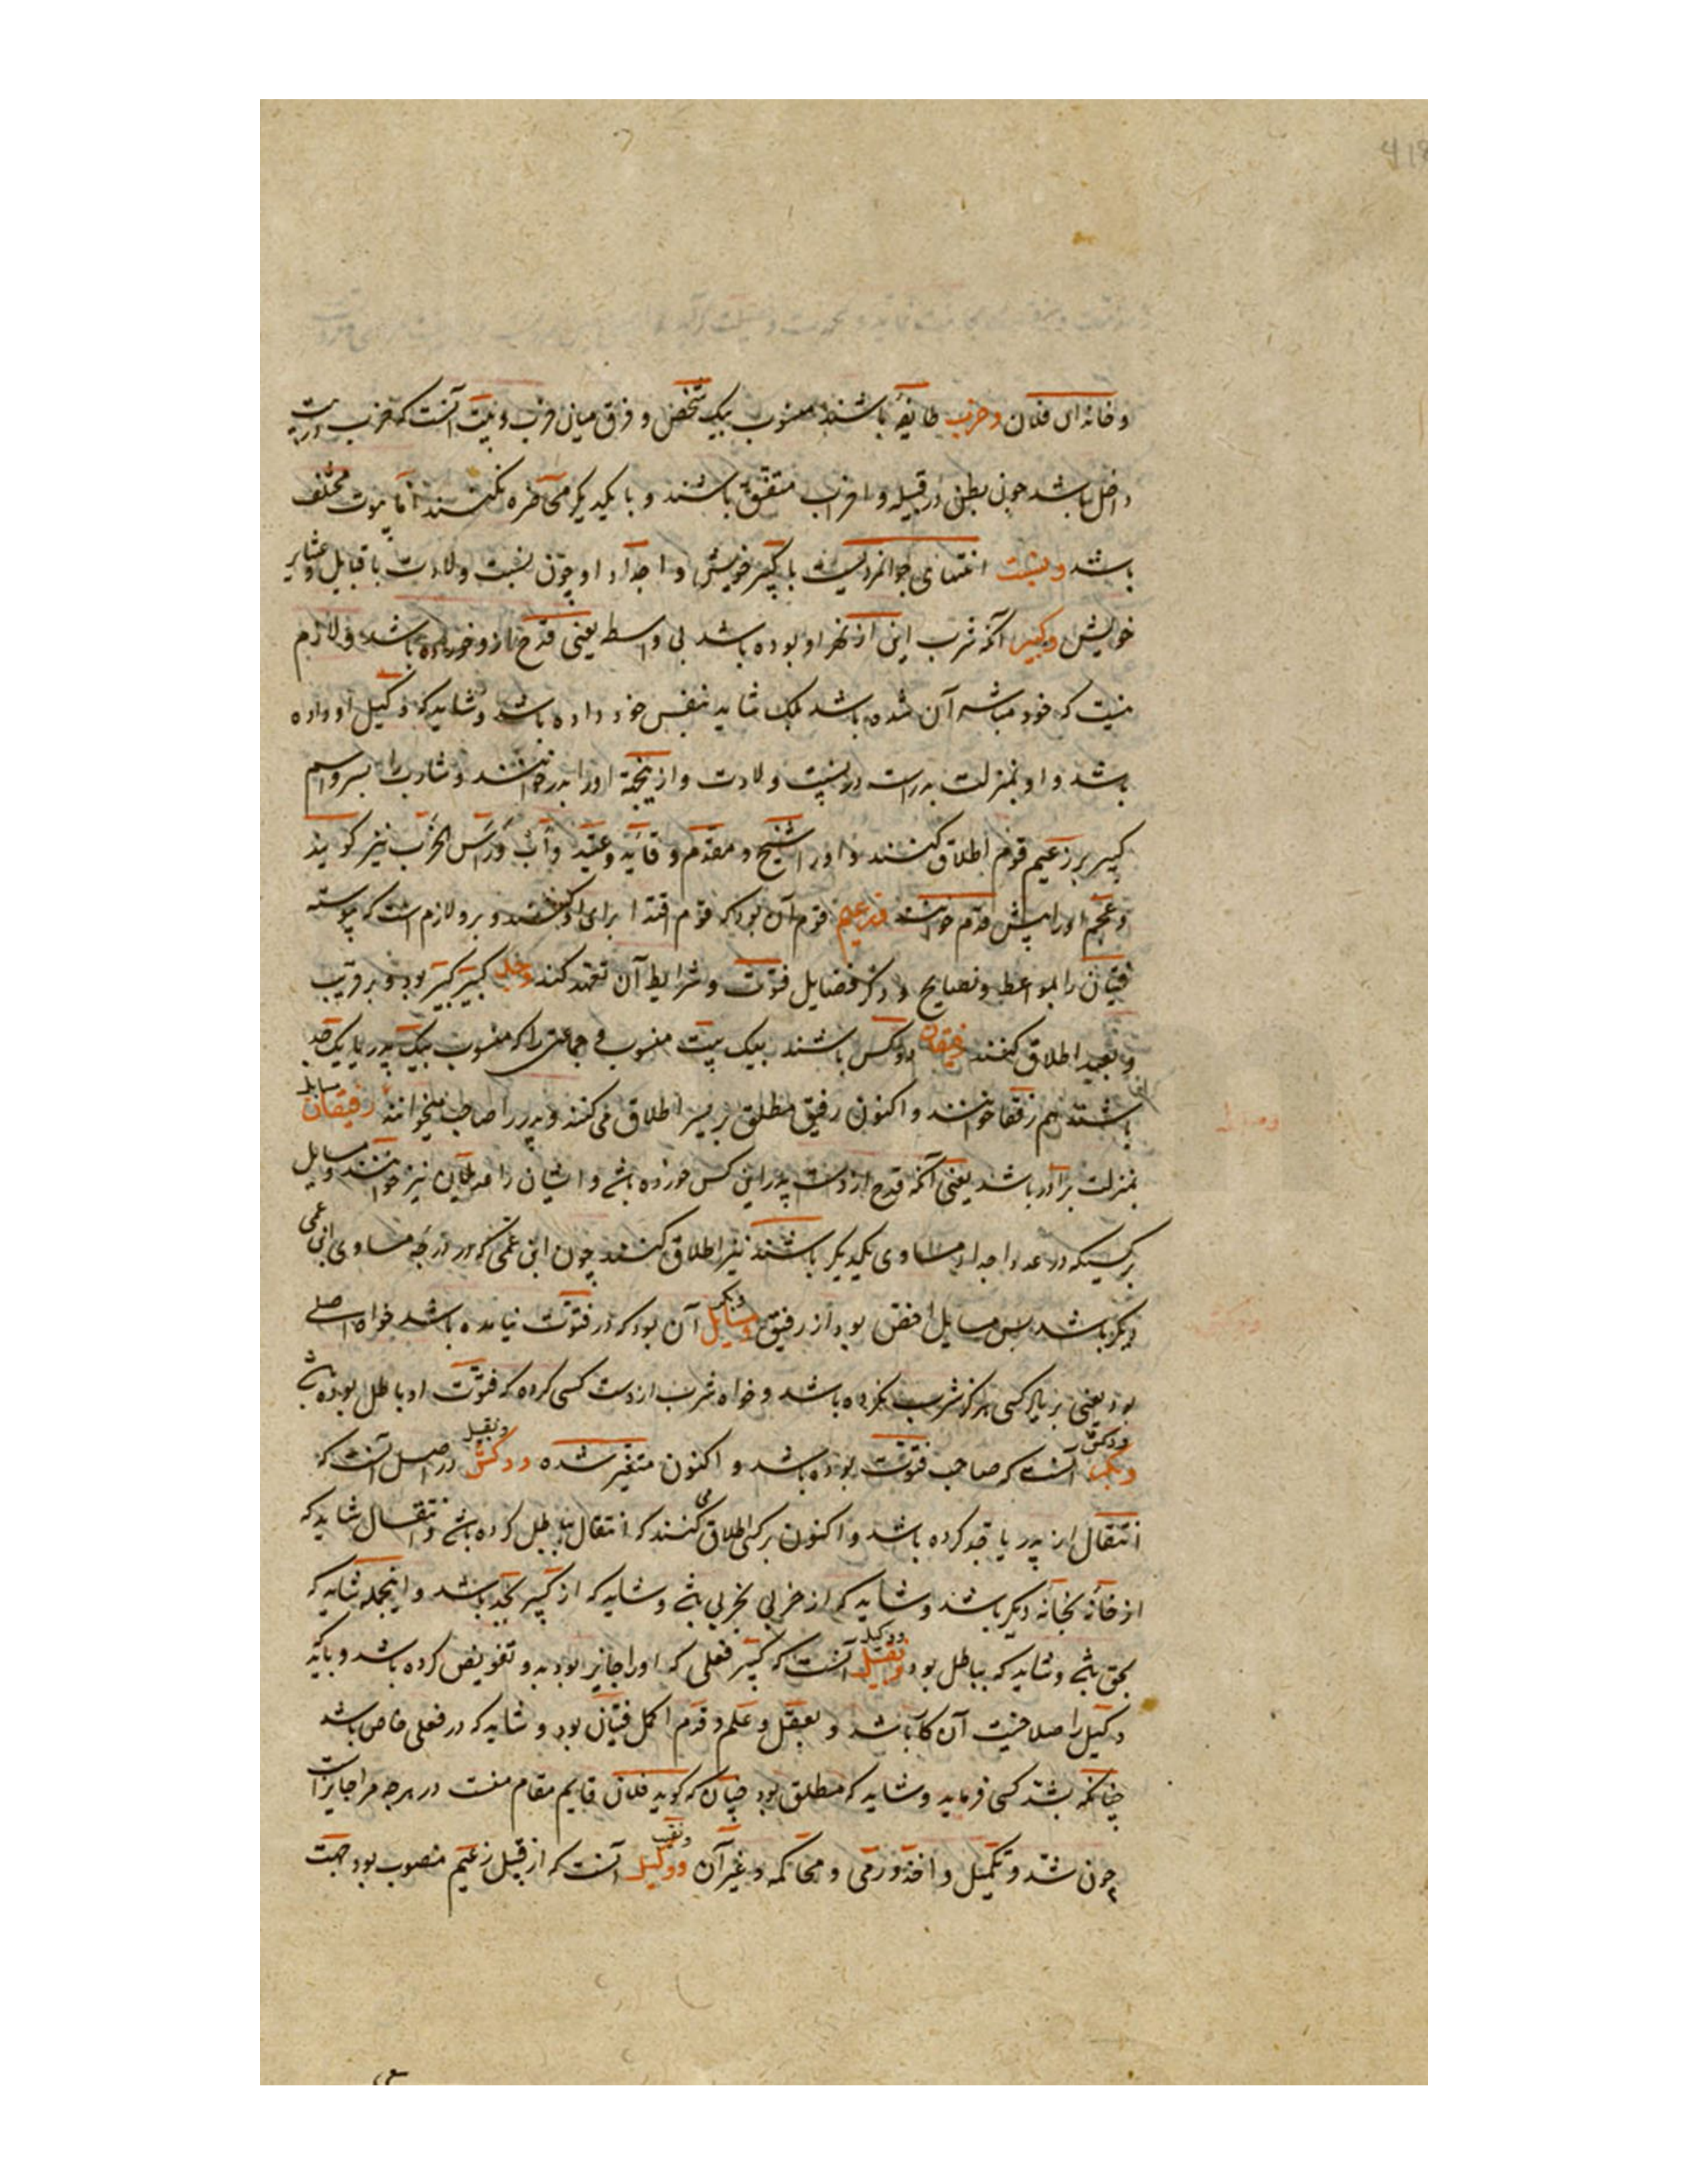 و خانه‌ای فلان و حزب طایفه باشند منسوب بیک شخص و فرق میان حزب و بیت آنست که حزب در بیت
داخل باشد چون بطن در قبیله و احزاب متفق باشند و با یکدیگر محاضره نکنند اما بیوت مختلف
باشد و نسبت انتمای جوانمردیست با کبیر خویش و اجداد او چون نسبت ولادت با قبایل و عشایر
خویش و کبیر آنکه شرب این از بهر او بوده باشد بی واسطه یعنی قدح از و خورده باشد و لازم
نیست که خود مباشر آن شده باشد بلک شاید بنفس خود داده باشد و شاید که وکیل او داده
باشد و او بمنزلت پدرست در نسبت ولادت و از ینجهة او را پدر خوانند و شارب را پسر و اسم
کبیر بر زعیم قوم اطلاق کنند و او را شیخ و مقدم و قاید و عقید و اب و راس الحزب نیز گویند
و عجم او را پیش قدم خوانند و زعیم قوم آن بود که قوم اقتدا برای او کنند و برو لازم است که پیوسته
فتیان را بمواعظ و نصایح و ذکر فضایل فتوت و شرایط آن تعهد کند و جد کبیر کبیر بود و بر قریب
و بعید اطلاق کنند رفیقان دو کس باشند بیک بیت منسوب و جماعتی را که منسوب بیک پدر یا یک جد
باشند هم رفقا خوانند و اکنون رفیق مطلق بر پسر اطلاق می کنند و پدر را صاحب میخوانند رفیقان
بمنزلت برادر باشد یعنی آنکه قدح از دست پدر این کس خورده باشد و ایشان را عدیلان نیز خوانند و مسایل
بر کسیکه در عدد اجداد مساوی یکدیگر باشند نیز اطلاق کنند چون ابن عمی که در درجه مساوی ابن عمی
دیگر باشد پس مسایل اخص بود از رفیق و سایل آن بود که در فتوت نیامده باشد خواه اصلی
بود یعنی بر یاد کسی هرگز شرب نکرده باشد و خواه شرب از دست کسی کرده که فتوت او باطل بوده باشد
آنست که صاحب فتوت بوده باشد و اکنون متغیر شده در اصل آنست که
انتقال از پدر یا جد کرده باشد و اکنون بر کسی اطلاق می کنند که انتقال بباطل کرده باشد و انتقال شاید که
از خانه بخانه دیگر باشد و شاید که از حزبی بحزبی باشد و شاید که از کبیر بجد باشد و اینجمله شاید که
بحق باشد و شاید که بباطل بود و وکیل آنست که کبیر فعلی که او را جایز بود بدو تفویض کرده باشد و باید که
وکیل را صلاحیت آن کار باشد و بعقل و علم و قدم اکمل فتیان بود و شاید که در فعلی خاص باشد
چنانکه بشد کسی فرماید و شاید که مطلق بود چنان که گوید فلان قایم مقام منست در هرچه مرا جایز است
چون شد و تکمیل و اخذ و رمی و محاکمه و غیر آن و نقیب آنست که از قبل زعیم منصوب بود جهت